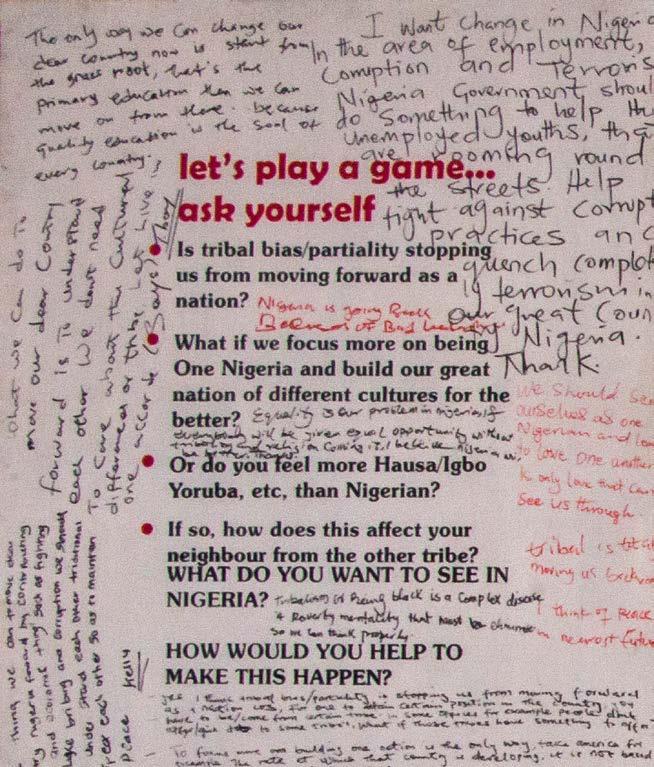 The only way we can change our
dear country now is start from
the grass root, that's the
primary education then we can
move on from there. because
quality education is the soul of
every country.
I want change in Nigeria
In the area of employment,
Corruption and Terroris
Nigeria Government shoul
do something to help the
unemployed youths, tha
are rooming round
the streets. Help
fight against corrupt
practices and
quench complet
terrorism in
our great Coun
Nigeria.
Thank.
let's play a game...
ask yourself
• Is tribal bias/partiality stopping
us from moving forward as a
nation?
Nigeria is going Back
Because of Bad
• What if we focus more on being
One Nigeria and build our great
nation of different cultures for the
better?
Equality is our problem in nigeria if
everybody will be given equal opportunity without
• Or do you feel more Hausa/Igbo
Yoruba, etc, than Nigerian?
• If so, how does this affect your
neighbour from the other tribe?
WHAT DO YOU WANT TO SEE IN
NIGERIA?
Tribalism of Being black is a complex disease
& Poverty mentality that must be
so we can think properly.
HOW WOULD YOU HELP TO
MAKE THIS HAPPEN?
We should see
ourselves as one
Nigerian and lea
to love one another
is only love that can
see us through.
tribal is
moving us backwar
I think of peace
in nearest future
What we can do to
move our dear Country
forward is to understand
each other we don't need
To care about the cultural
differences or tribe let live
one
thing we can to move our
nigeria forward by contributing
such as fighting
bribing and corruption we should
under stand each other traditional
each other so as to maintain
peace Kelly
yes I think tribal bias/partiality is stopping us from moving forward
as a nation cos, for one to obtain certain position in the country you
have to be/come from certain tribe in some offices for example people
to some tribe. what if those tribes have something to offer
To focus more on building one nation is the only way, take america for
example the rate at which that country is developing. it is not based